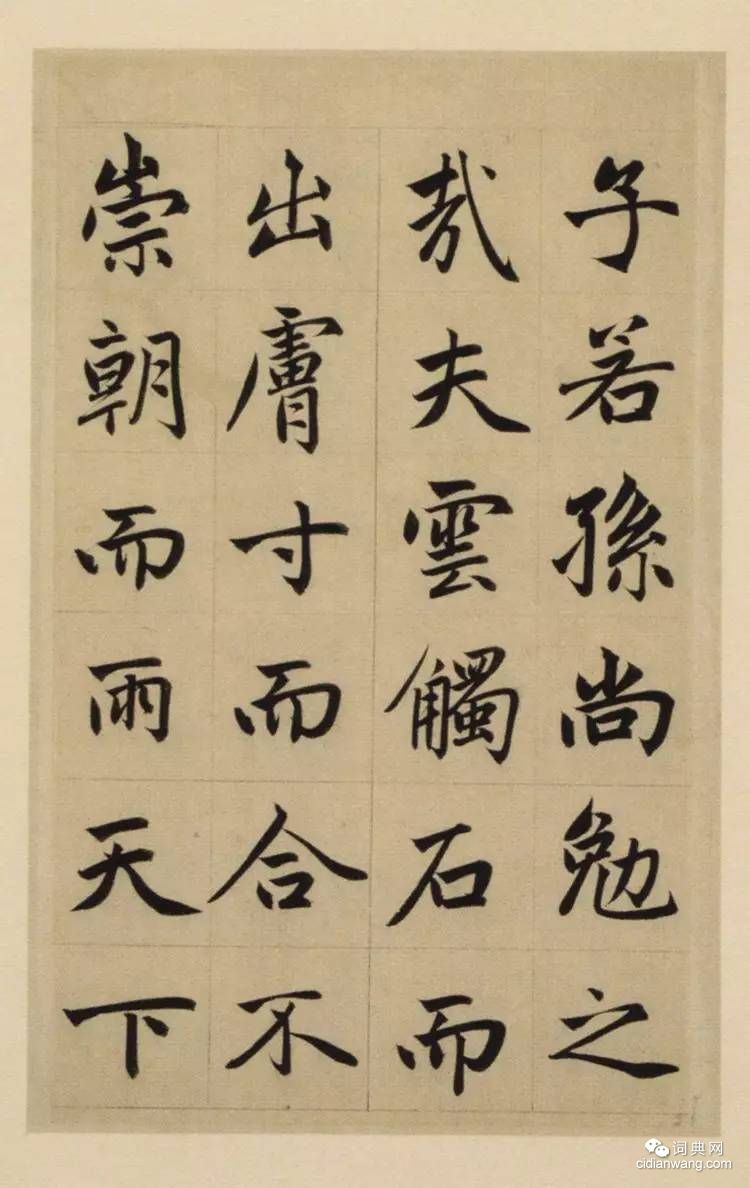 子若孫尚勉之
哉夫雲觸石而
出膚寸而合不
崇朝而雨天下
词典网
cidianwang.com